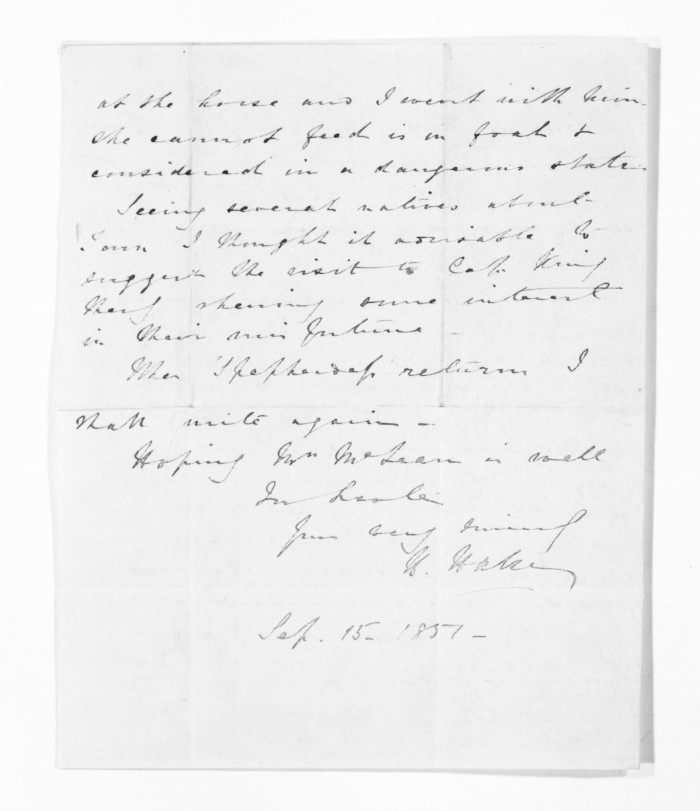 at the horse and I went with him.
she cannot feed is in foal &
considered in a dangerous state
Seeing several natives about
Town I thought it advisable to
suggest the visit to Capt King
they shewing some interest
in their misfortune -
When returns I
shall write again -
Hoping Mrs McLean is well
In haste
Yours very sincerely
H. Halse
Sep. 15 - 1851 -